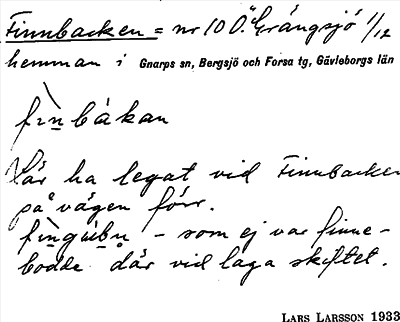 Finnbacken = nr 10 Ö. Grängsjö 1/12
hemman i Gnarps sn, Bergsjö och Forsa tg, Gävleborgs län
fìnbákan
Lär ha legat vid Finnbacken
på vägen förr.
fìngúbn – som ej var finne –
bodde där vid laga skiftet.
LARS LARSSON 1933